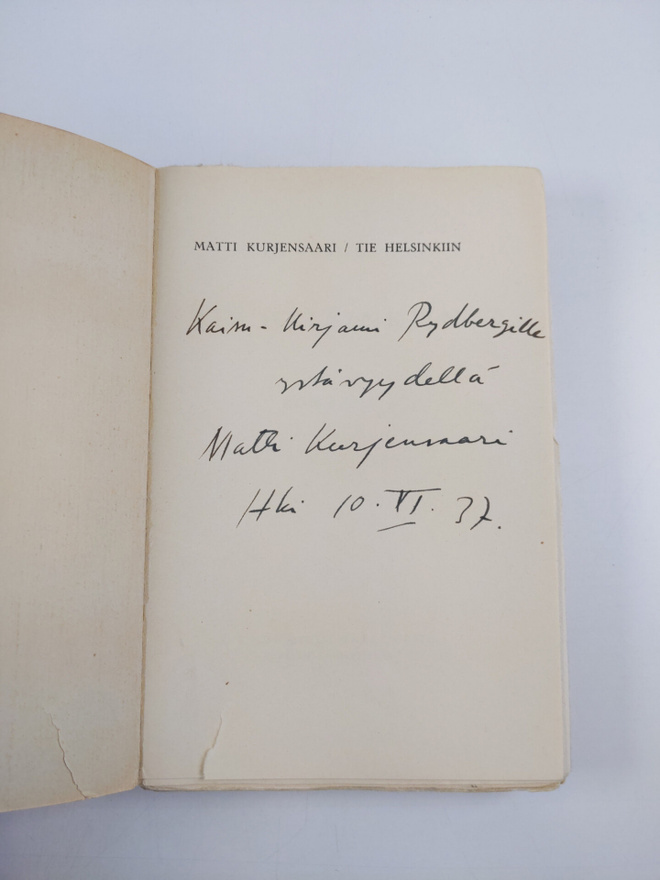 MATTI KURJENSAARI / TIE HELSINKIIN
Kaisu-Mirjami Rydbergille
ystävyydellä
Matti Kurjensaari
Hki 10.VI.37.